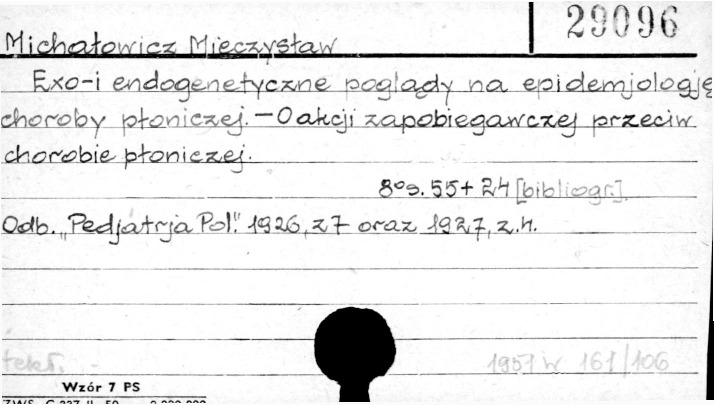 29096
Michałowicz Mieczysław
Exo-i endogenetyczne poglądy na epidemjologję
choroby płoniczej. — O akcji zapobiegawczej przeciw
chorobie płoniczej.
8° s. 55 + 24 [bibliogr.].
Odb. „Pedjatrja Pol." 1926, z 7 oraz 1927, z. 4.
tekt. -
1957 W 161/106
Wzór 7 PS